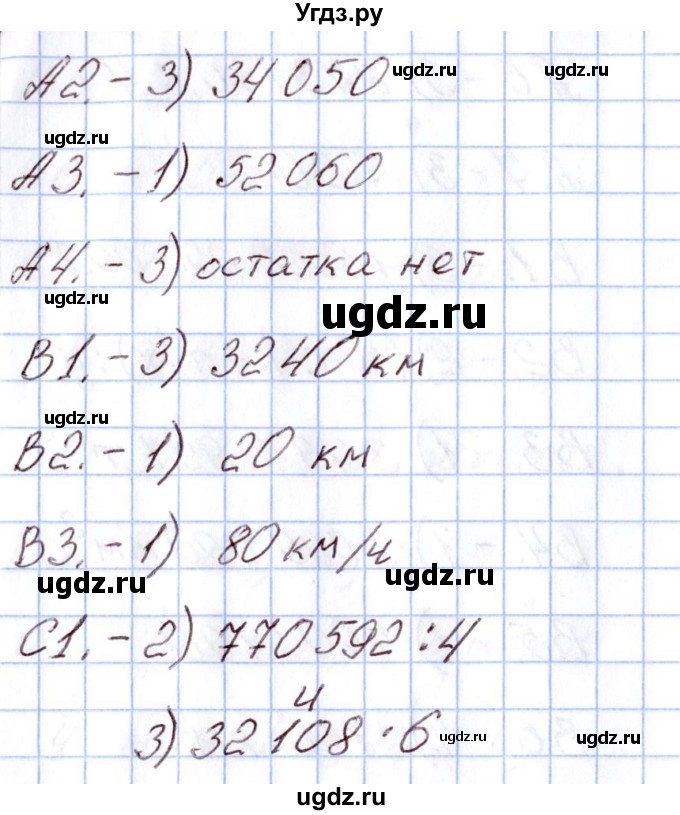 Угдз.ру
А2. - 3) 34 050
ugdz.ru
ugdz.ru
ugdz.ru
А3. - 1) 52 060
А4. - 3) остатка нет
ugdz.ru
ugdz.ru
В1. - 3) 3240 км
ugdz.ru
В2. - 1) 20 км
В3. - 1) 80 км/ч
ugdz.ru
ugdz.ru
С1. - 2) 770 592 : 4
и
3) 32 108 · 6
ugdz.ru
ugdz.ru
ugdz.ru